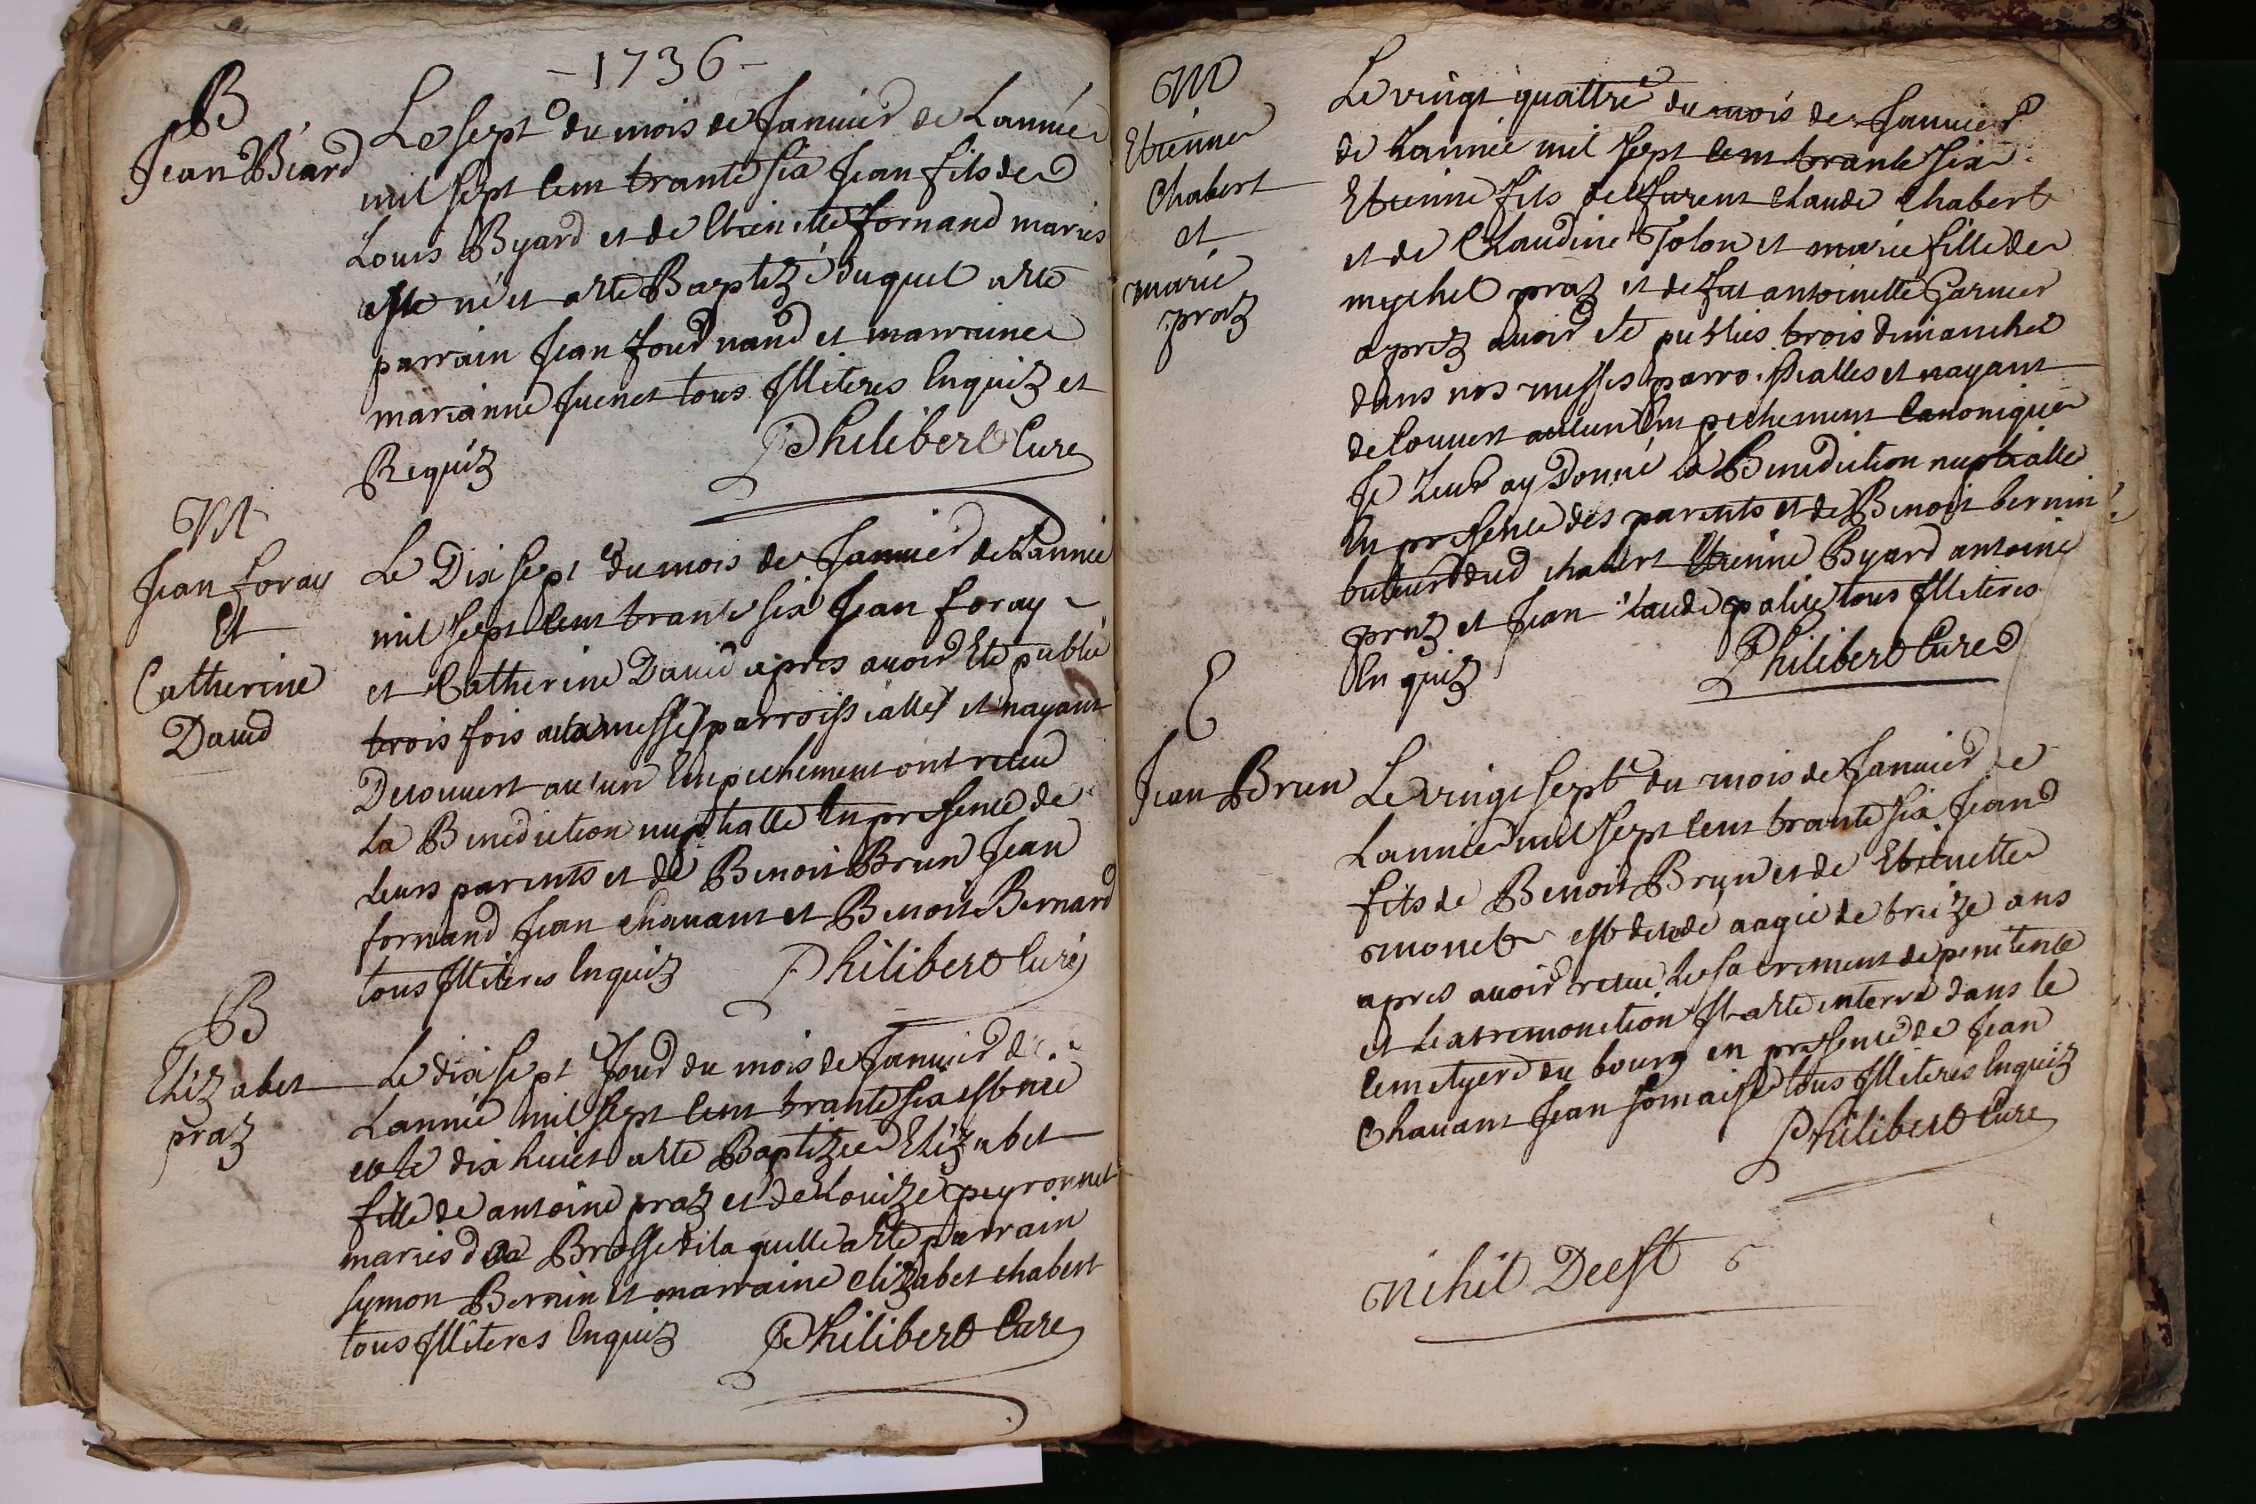 - 1736 -
B
Jean Béard
Le sept e du mois de Januier de Lannée
mil sept cent trante six Jean fils de
Louis Byard et de Etienette fornand maries
est né et a ete Baptizé duquel a ete
parrain Jean fournand et marraine
marianne Juenet tous Illiteres Enquiz et
Requiz Philibert Cure
M
Jean foray
Et
Catherine
Dauid
Le Dix sept e du mois de Januier de Lannée
mil sept cent trante six Jean foray
et Catherine Dauid apres auoir Eté publié
trois fois a la messe parroissialle et nayant
Decouuert aucun Empechement ont receu
La Benediction nuptialle En presence de
Leurs parents et de Benoit Brun Jean
fornand Jean chauant et Benoit Bernard
tous Illiteres Enquiz Philibert Curé
B
Elizabet
praz
Le dix sept e Jour du mois de Januier de
Lannée mil sept cent trante six est née
et le dix huict a ete Baptizée Elizabet
fille de antoine praz et de Louize peyronnet
maries de la Brosse de laquelle a ete parrain
symon Bernin et marraine elizabet chabert
tous Illiteres Enquiz Philibert Cure
M
Etienne
Chabert
et
marie
praz
Le vingt quattre e du mois de Januier
de Lannée mil sept cent trante six
Etienne fils de furent Claude Chabert
et de Claudine Tolon et marie fille de
mychel praz et de fut antoinette Garnier
aprez auoir ete publies trois dimanches
dans nos messes parroissialles et nayant
decouuert aucun Empechement Canonique
Je Leur ay Donné la Benediction nuptialle
En presence des parents et de Benoit bernin
chabert Etienne Byard antoine
praz et Jean claude palice tous Illiteres
Enquiz Philibert Cure
E
Jean Brun
Le vingt sept e du mois de Januier de
Lannée mil sept cent trante six Jean
fils de Benoit Brun et de Etienette
monet est decede aagé de treize ans
apres auoir receu Le sacrement de penitence
et Lextremonction Et a ete enterre dans le
Cemetyere du bourg en presence de Jean
Chauant Jean tous Illiteres Enquiz
Philibert Cure
Nihil Deest